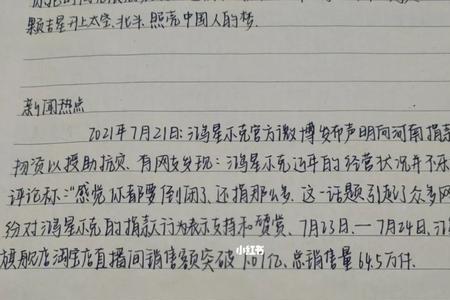 颗吉星升上太空,北斗照亮中国人的梦.
新闻热点
2021年7月21日:鸿星尔克官方微博发布声明向河南捐款
物资以援助抗灾.有网友发现:鸿星尔克近年的经营状况并不乐
评论称:"感觉你都要倒闭了还捐那么多.这一话题引起了众多网
纷对鸿星尔克的捐款行为表示支持和赞赏.7月23日—7月24日,鸿
旗舰店淘宝店直播间销售额突破1.07亿,总销售量64.5万件.
小红书